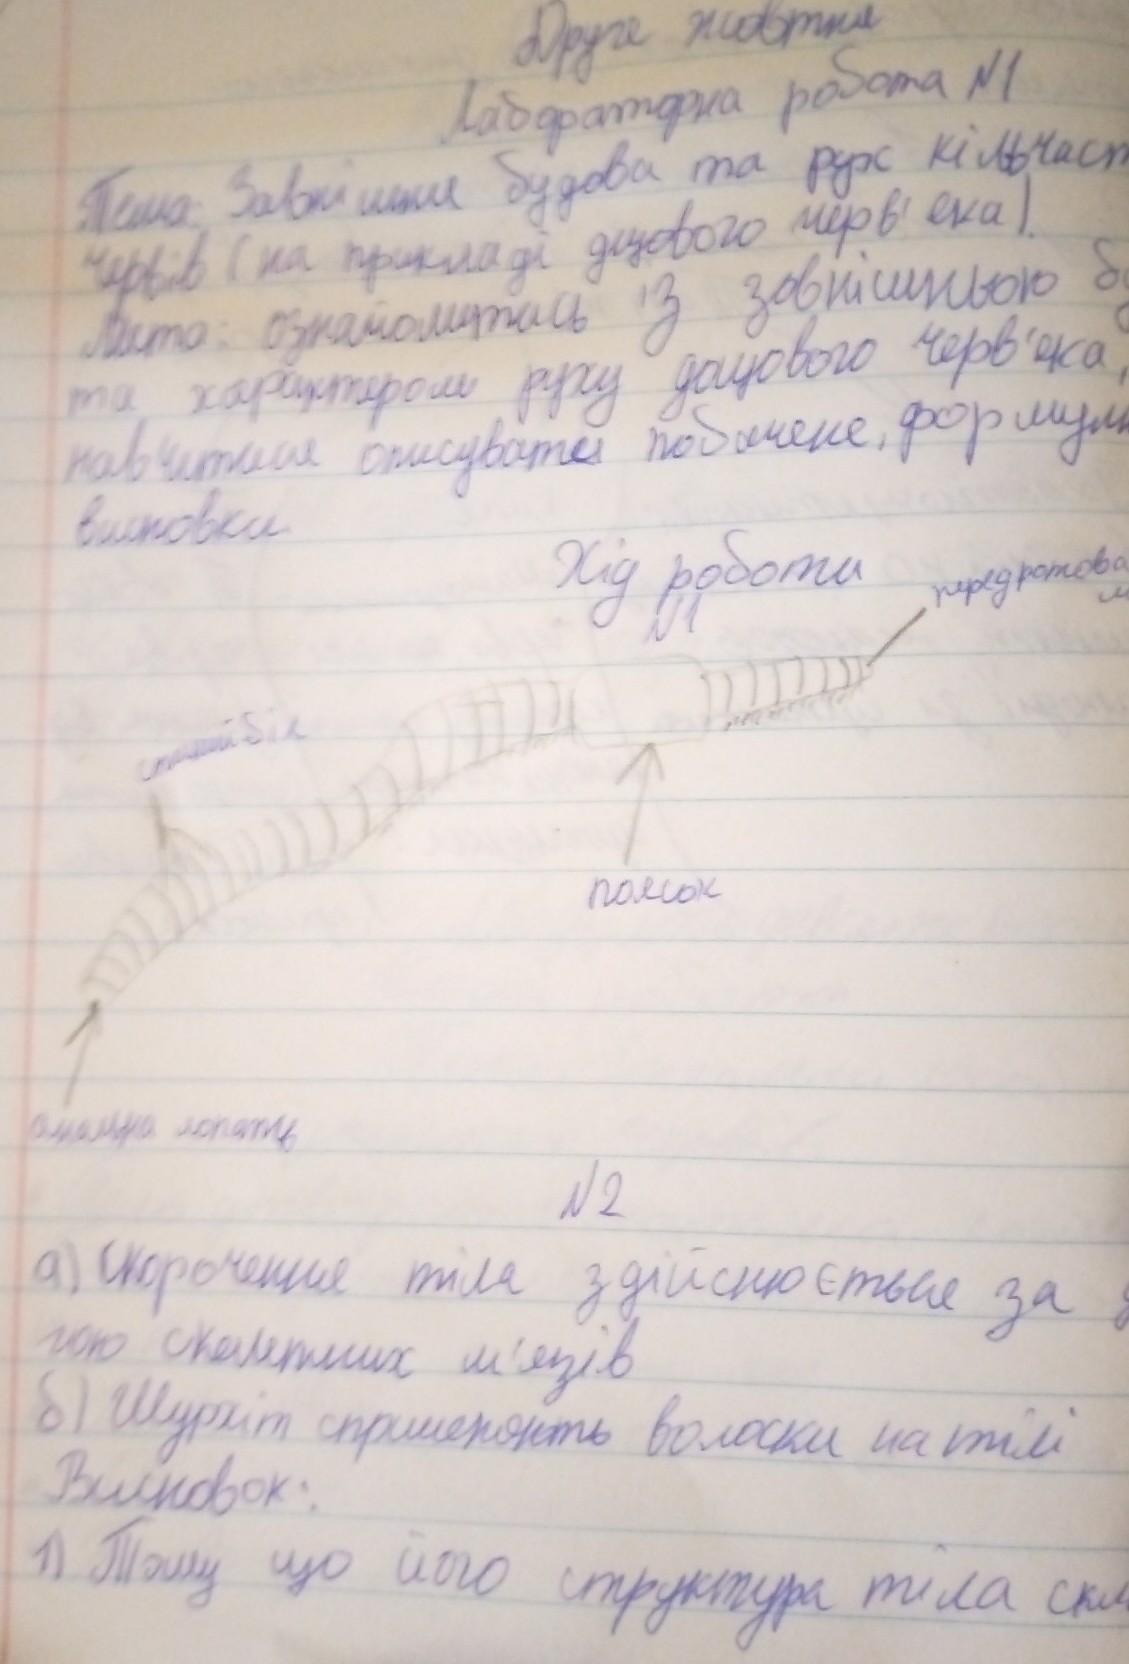 Друге жовтня
Лабораторна робота №1
Тема: Зовнішня будова та рух кільчаст
червів (на прикладі дощового черв'яка).
Мета: ознайомитись із зовнішньою бу
та характером руху дощового черв'яка,
навчитися описувати побачене, формул
висновки
Хід роботи
№1
передротова
спинний бік
поясок
анальна лопать
№2
а) Скорочення тіла здійснюється за д
гою скелетних м'язів
б) Шурхіт спричиняють волоски на тілі
Висновок:
1) Тому що його структура тіла скл